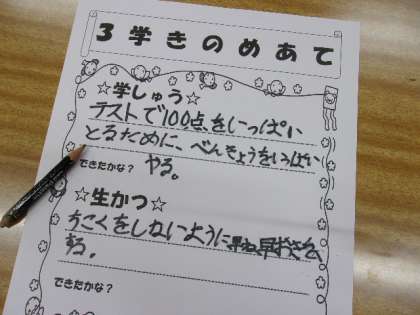 3学きのめあて
☆学しゅう☆
テストで100点をいっぱい
とるために、べんきょうをいっぱい
やる。
できたかな?
☆生かつ☆
ちこくをしないように早ね早おきを
する。
できたかな?